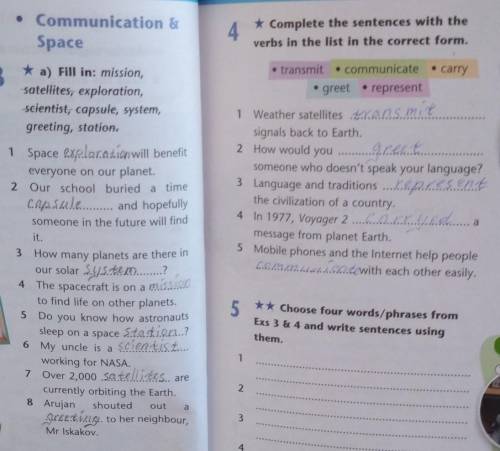 • Communication &
Space
3 ★ a) Fill in: mission,
satellites, exploration,
scientist, capsule, system,
greeting, station.
1 Space exploration will benefit
everyone on our planet.
2 Our school buried a time
capsule.......... and hopefully
someone in the future will find
it.
3 How many planets are there in
our solar system........?
4 The spacecraft is on a mission
to find life on other planets.
5 Do you know how astronauts
sleep on a space station..?
6 My uncle is a scientist....
working for NASA.
7 Over 2,000 satellites.. are
currently orbiting the Earth.
8 Arujan shouted out a
greeting. to her neighbour,
Mr Iskakov.
4 ★ Complete the sentences with the
verbs in the list in the correct form.
• transmit • communicate • carry
• greet • represent
1 Weather satellites transmit
signals back to Earth.
2 How would you .......... greet ..........
someone who doesn't speak your language?
3 Language and traditions ...represent
the civilization of a country.
4 In 1977, Voyager 2 ..... carryed ..... a
message from planet Earth.
5 Mobile phones and the Internet help people
communicate with each other easily.
5 ★★ Choose four words/phrases from
Exs 3 & 4 and write sentences using
them.
1
2
3
4